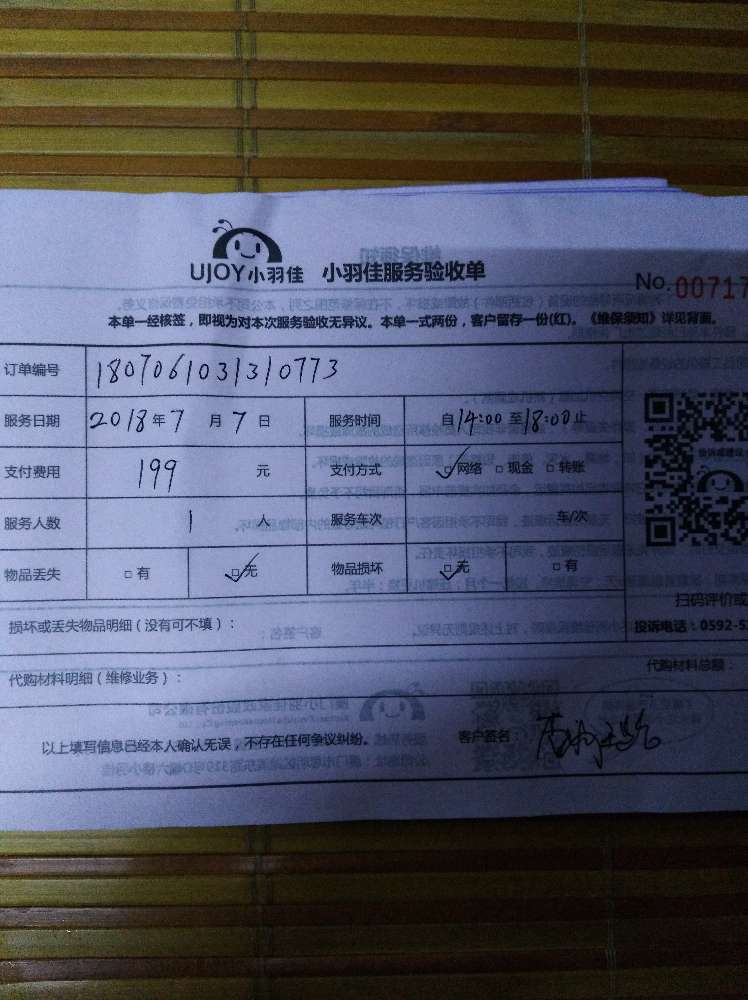 UJOY小羽佳 小羽佳服务验收单
No.00717
本单一经核签，即视为对本次服务验收无异议。本单一式两份，客户留存一份(红)。《维保须知》详见背面。
订单编号 1807061031310773
服务日期 2018年7月7日 服务时间 自14:00至18:00止
支付费用 199 元 支付方式 ☑网络 □现金 □转账
服务人数 1 人 服务车次 车/次
物品丢失 □有 ☑无 物品损坏 ☑无 □有
扫码评价或
损坏或丢失物品明细（没有可不填）：
投诉电话：0592-5
代购材料明细（维修业务）：
代购材料总额：
以上填写信息已经本人确认无误，不存在任何争议纠纷。 客户签名：